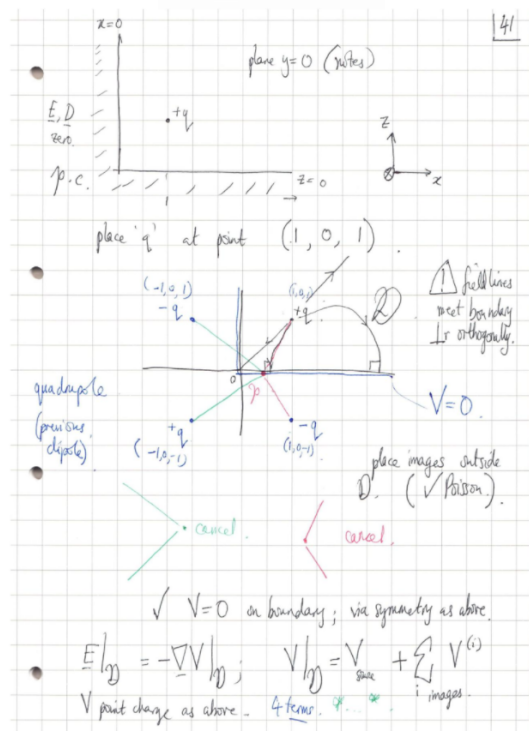 x=0
41
plane y=0 (notes)
E, D
zero.
+q
z
x
p.c.
z=0
1
place 'q' at point (1, 0, 1).
(-1,0,1)
-q
(1,0,1)
+q
D
! field lines
meet boundary
⊥r orthogonally.
0
p
V=0.
quadrupole
(previous
dipole)
+q
(-1,0,-1)
-q
(1,0,-1)
place images outside
D. (✓ Poisson).
cancel.
cancel.
✓ V=0 on boundary; via symmetry as above.
E|_D = -∇V|_D ; V|_D = V + Σ V^(i)
i images.
V point charge as above. 4 terms. *...*